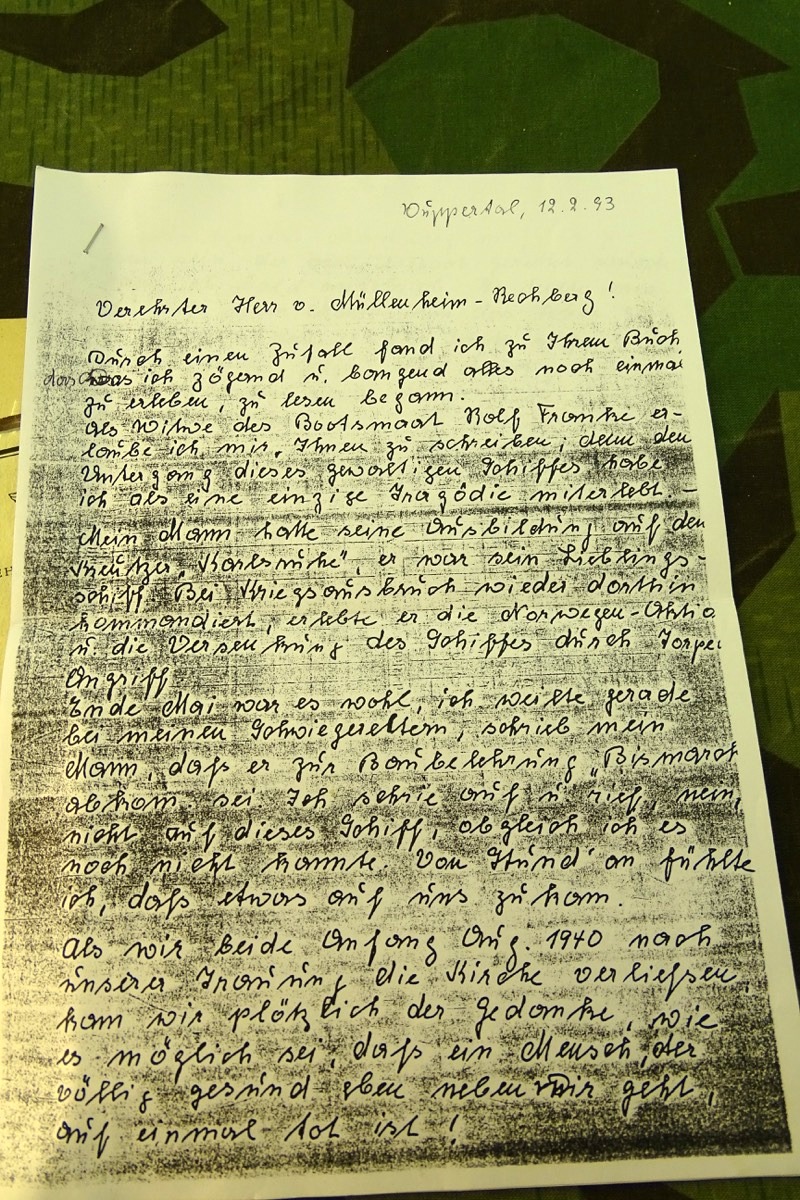 Wuppertal, 12.2.93
Verehrter Herr v. Müllenheim-Rechberg!
Durch einen Zufall fand ich zu Ihrem Buch
das ich zögernd u. bangend alles noch einmal
zu erleben, zu lesen begann.
Als Witwe des Bootsmaat Rolf Franke er-
laube ich mir, Ihnen zu schreiben, denn den
Untergang dieses gewaltigen Schiffes habe
ich als eine einzige Tragödie miterlebt. -
Mein Mann hatte seine Ausbildung auf den
Kreuzer "Karlsruhe", er war sein Lieblings-
schiff. Bei Kriegsausbruch wieder dorthin
kommandiert, erlebte er die Norwegen-Aktio
u. die Versenkung des Schiffes durch Torpe
Angriff
Ende Mai war es wohl, ich weilte gerade
bei meinen Schwiegereltern, schrieb mein
Mann, daß er zur Baubelehrung "Bismarck
abkom. sei. Ich schrie auf u. rief, nein,
nicht auf dieses Schiff, obgleich ich es
noch nicht kannte. Von Stund' an fühlte
ich, daß etwas auf uns zu kam.
Als wir beide Anfang Aug. 1940 nach
unserer Trauung die Kirche verließen,
kam mir plötzlich der Gedanke, wie
es möglich sei, daß ein Mensch, der
völlig gesund eben neben mir geht,
auf einmal tot ist!